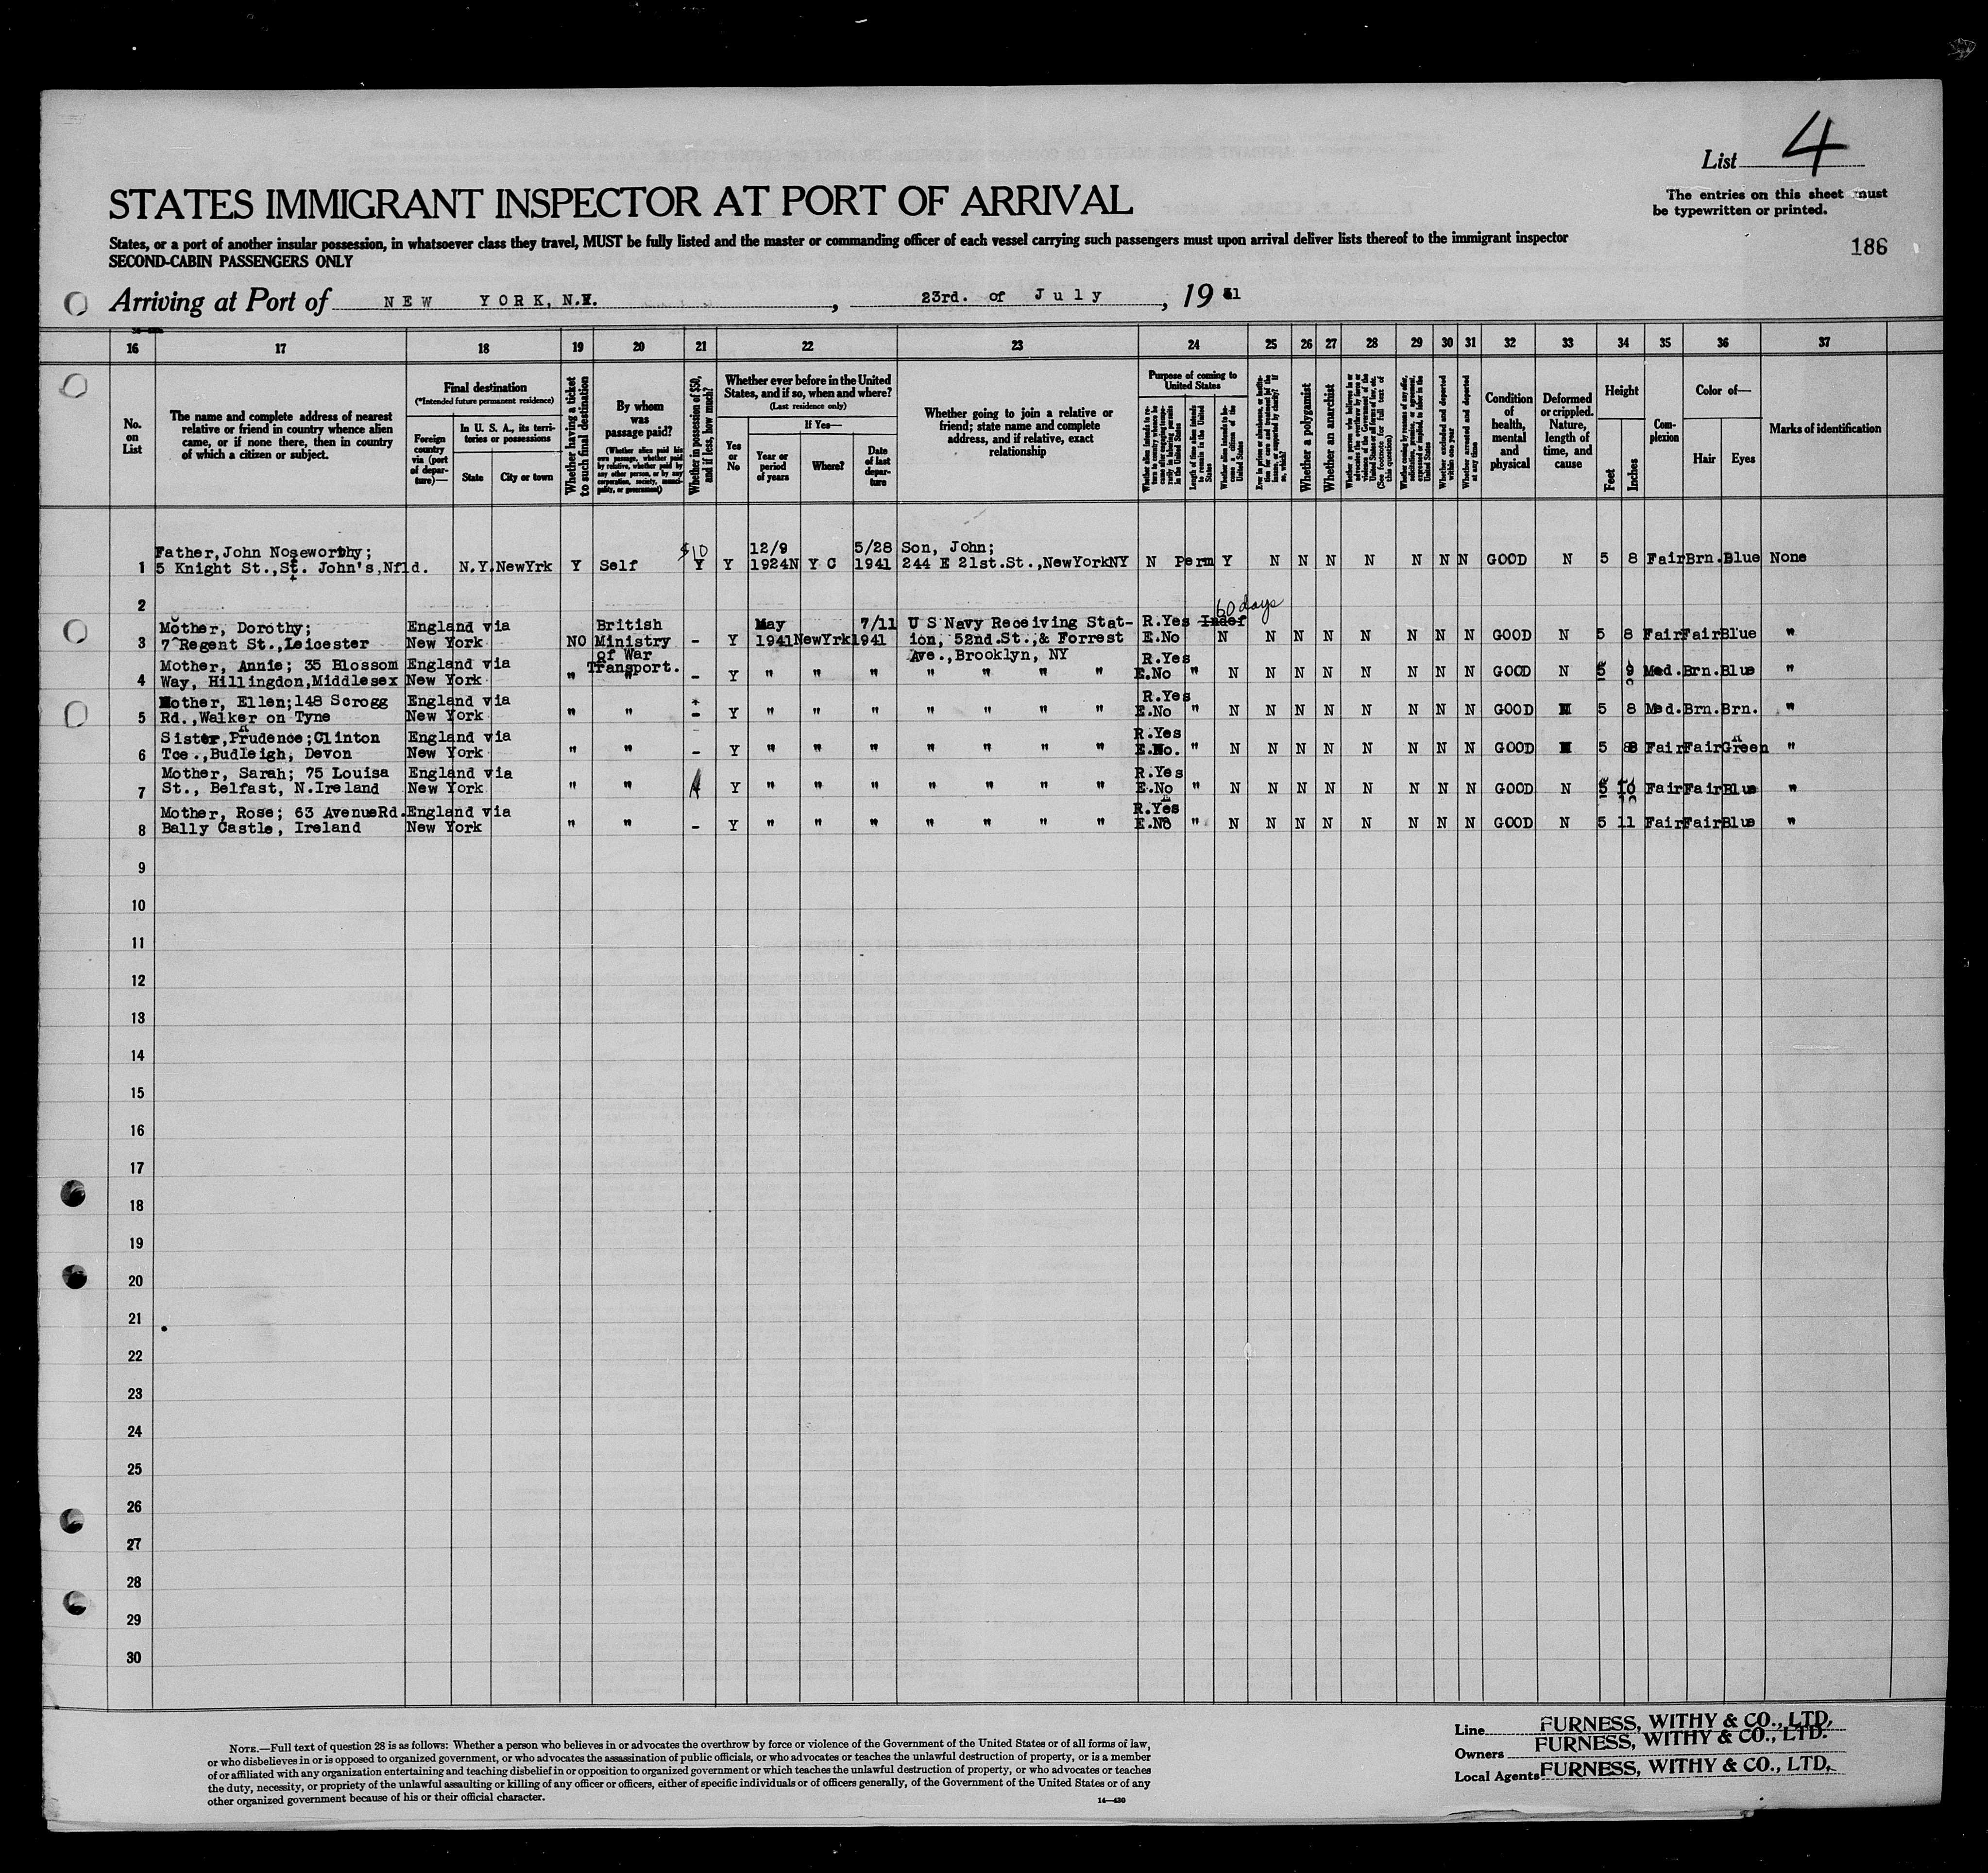 List 4
STATES IMMIGRANT INSPECTOR AT PORT OF ARRIVAL
The entries on this sheet must
be typewritten or printed.
States, or a port of another insular possession, in whatsoever class they travel, MUST be fully listed and the master or commanding officer of each vessel carrying such passengers must upon arrival deliver lists thereof to the immigrant inspector
SECOND-CABIN PASSENGERS ONLY
186
Arriving at Port of NEW YORK, N.Y. , 23rd. of July , 19 41
16 17 18 19 20 21 22 23 24 25 26 27 28 29 30 31 32 33 34 35 36 37
No. on List
The name and complete address of nearest relative or friend in country whence alien came, or if none there, then in country of which a citizen or subject.
Final destination
(*Intended future permanent residence)
Foreign country via (port of departure)—
In U. S. A., its territories or possessions
State
City or town
Whether having a ticket to such final destination
By whom was passage paid?
(Whether alien paid his own passage, whether paid by relative, whether paid by any other person, or by any corporation, society, municipality, or government)
Whether in possession of $50, and if less, how much?
Whether ever before in the United States, and if so, when and where?
(Last residence only)
Yes or No
If Yes—
Year or period of years
Where?
Date of last departure
Whether going to join a relative or friend; state name and complete address, and if relative, exact relationship
Purpose of coming to United States
Whether alien intends to return to country whence he came after engaging temporarily in laboring pursuits in the United States
Length of time alien intends to remain in the United States
Whether alien intends to become a citizen of the United States
Ever in prison or almshouse, or institution for care and treatment of the insane, or supported by charity? If so, which?
Whether a polygamist
Whether an anarchist
Whether a person who believes in or advocates the overthrow by force or violence of the Government of the United States or all forms of law, etc. (See footnote for full text of this question)
Whether coming by reason of any offer, solicitation, promise, or agreement, expressed or implied, to labor in the United States
Whether excluded and deported within one year
Whether arrested and deported at any time
Condition of health, mental and physical
Deformed or crippled. Nature, length of time, and cause
Height
Feet
Inches
Complexion
Color of—
Hair
Eyes
Marks of identification
Father,John Noseworthy; $10 12/9 5/28 Son, John;
1 5 Knight St.,St. John's,Nfld. N.Y. NewYrk Y Self Y Y 1924 N Y C 1941 244 E 21st.St.,NewYorkNY N Perm Y N N N N N N N GOOD N 5 8 Fair Brn. Blue None
2 60 days
Mother, Dorothy; England via British May 7/11 U S Navy Receiving Stat- R.Yes Indef
3 7 Regent St.,Leicester New York NO Ministry - Y 1941 NewYrk 1941 ion, 52nd.St.,& Forrest E.No N N N N N N N N GOOD N 5 8 Fair Fair Blue "
of War Ave.,Brooklyn, NY
Mother, Annie; 35 Blossom England via Transport. R.Yes
4 Way, Hillingdon,Middlesex New York " " - Y " " " " " " " E.No " N N N N N N N N GOOD N 5 9 Med. Brn. Blue "
Mother, Ellen;148 Scrogg England via R.Yes
5 Rd.,Walker on Tyne New York " " - Y " " " " " " " E.No " N N N N N N N N GOOD N 5 8 Med. Brn. Brn. "
Sister,Prudence;Clinton England via R.Yes
6 Tce.,Budleigh, Devon New York " " - Y " " " " " " " E.No. " N N N N N N N N GOOD N 5 8 Fair Fair Green "
Mother, Sarah; 75 Louisa England via R.Yes
7 St., Belfast, N.Ireland New York " " Y " " " " " " " E.No " N N N N N N N N GOOD N 5 10 Fair Fair Blue "
Mother, Rose; 63 AvenueRd. England via R.Yes
8 Bally Castle, Ireland New York " " - Y " " " " " " " E.No " N N N N N N N N GOOD N 5 11 Fair Fair Blue "
9
10
11
12
13
14
15
16
17
18
19
20
21
22
23
24
25
26
27
28
29
30
NOTE.—Full text of question 28 is as follows: Whether a person who believes in or advocates the overthrow by force or violence of the Government of the United States or of all forms of law,
or who disbelieves in or is opposed to organized government, or who advocates the assassination of public officials, or who advocates or teaches the unlawful destruction of property, or is a member
of or affiliated with any organization entertaining and teaching disbelief in or opposition to organized government or which teaches the unlawful destruction of property, or who advocates or teaches
the duty, necessity, or propriety of the unlawful assaulting or killing of any officer or officers, either of specific individuals or of officers generally, of the Government of the United States or of any
other organized government because of his or their official character.
14—430
Line FURNESS, WITHY & CO., LTD.
Owners FURNESS, WITHY & CO., LTD.
Local Agents FURNESS, WITHY & CO., LTD.